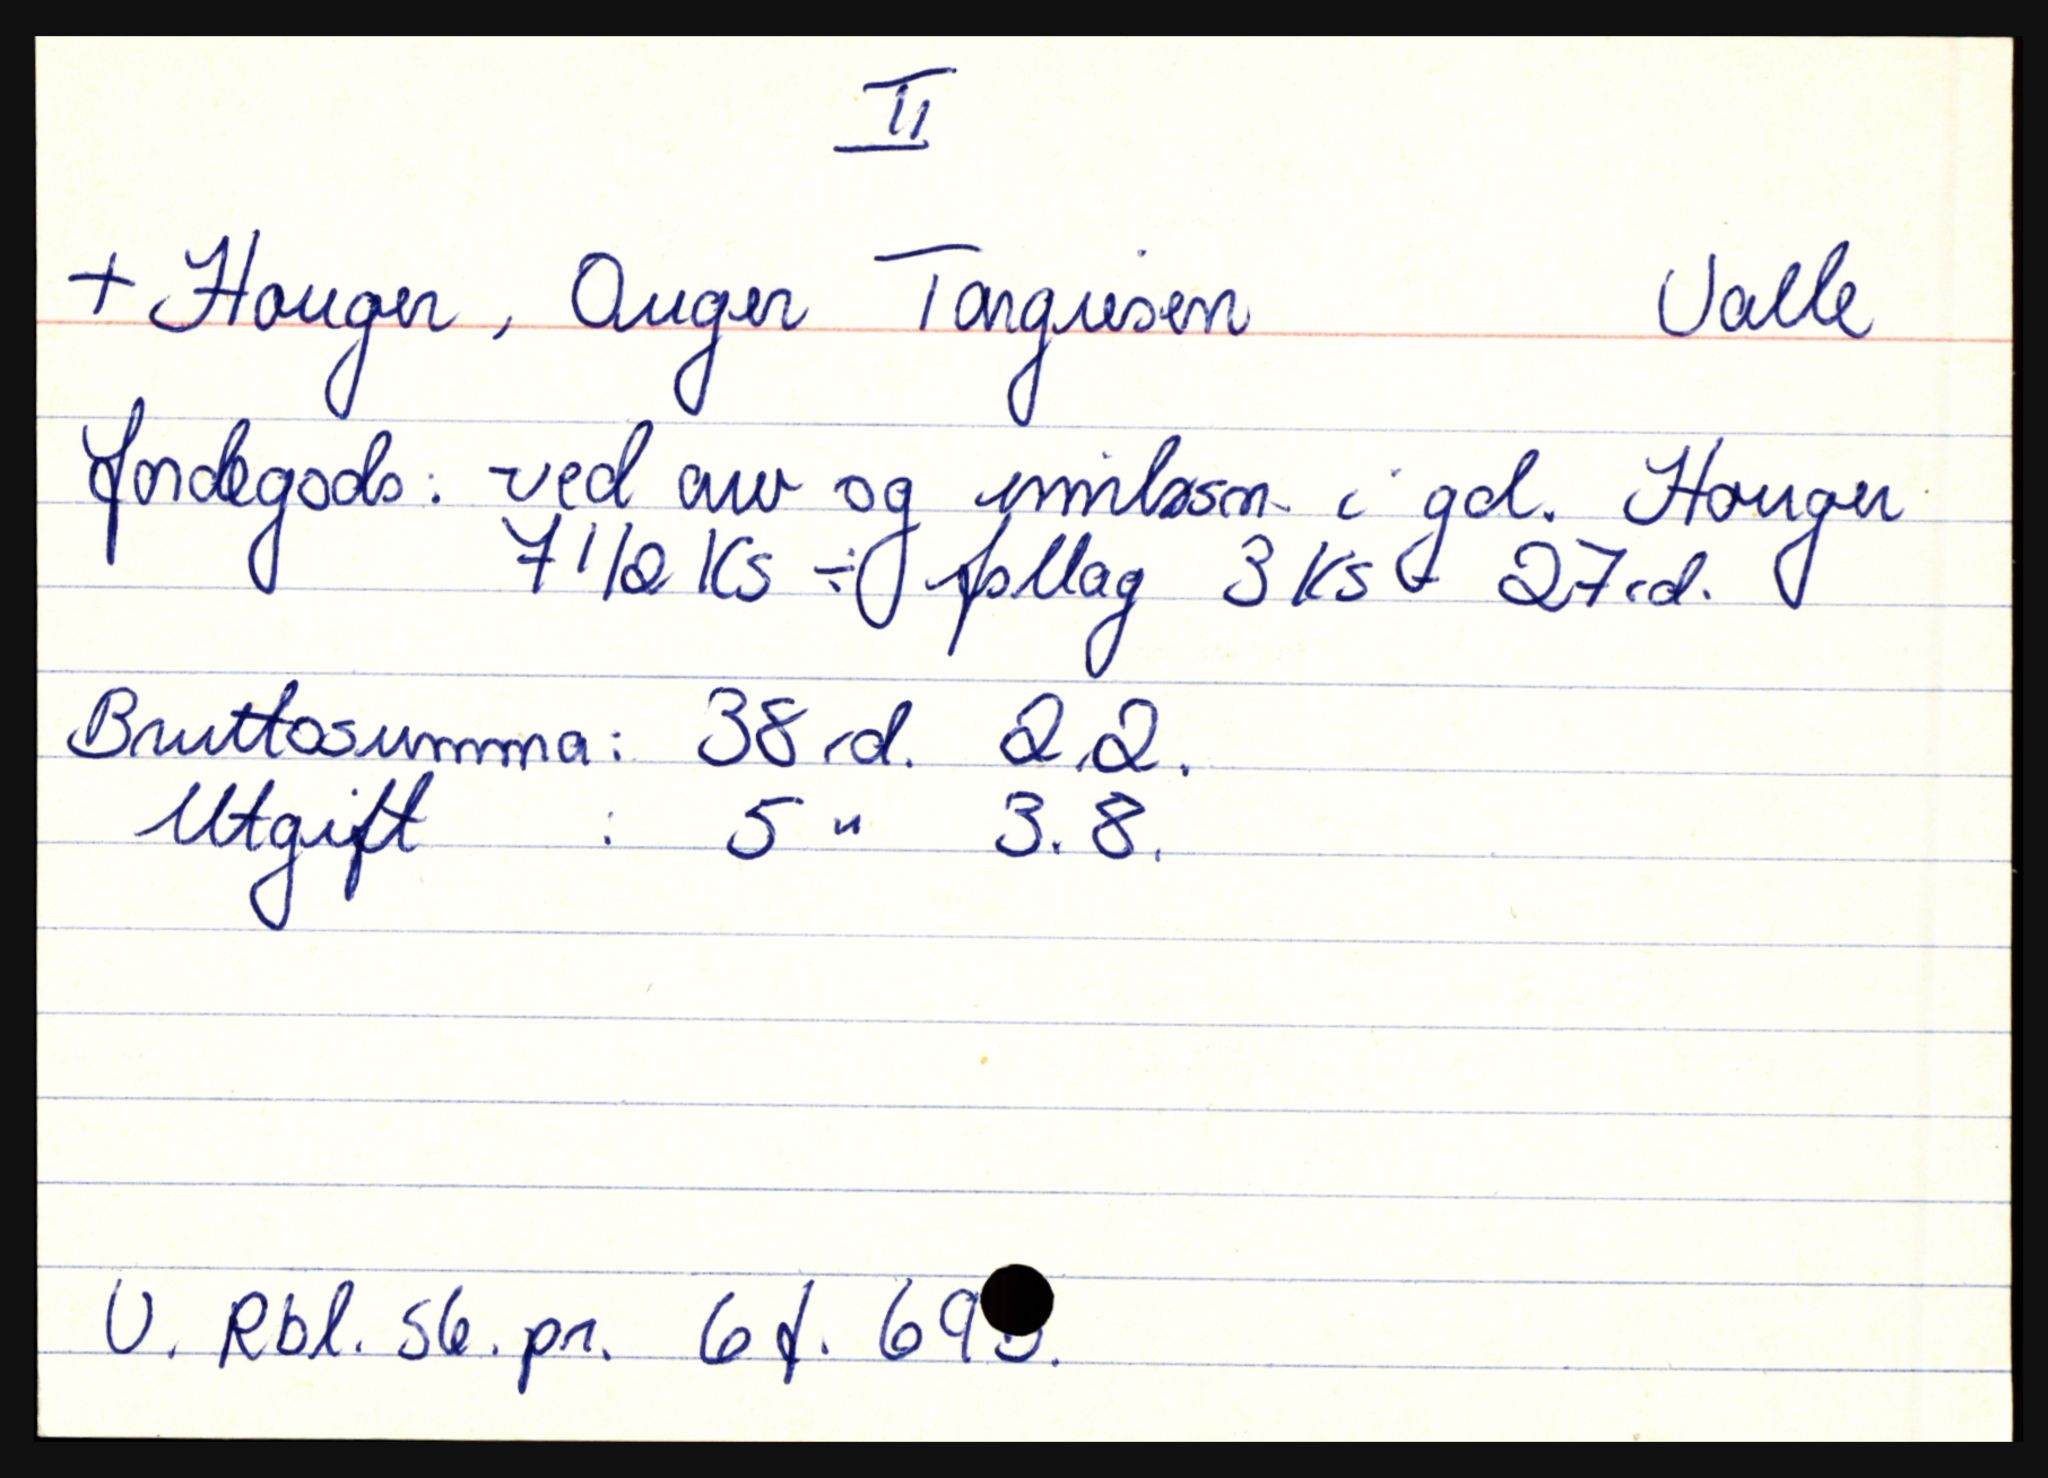 II
+ Houger, Auger Targiesen Valle
Jordegods: ved arv og innløsn. i gd. Houger
7 1/2 Ks ÷ follag 3 Ks 27 rd.
Bruttosumma: 38 rd. 2.2.
Utgift : 5 " 3.8.
V. Rbl. sk. pr. 6 f.